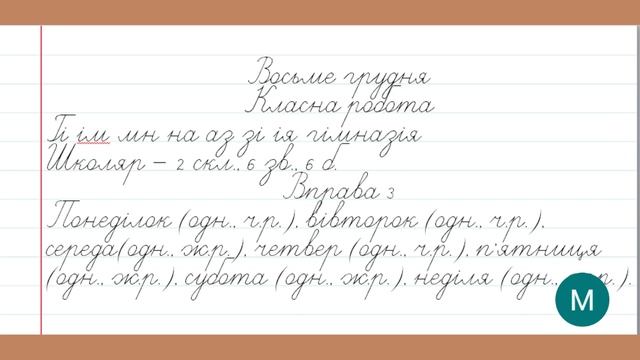 Восьме грудня
Класна робота
Гі ім мн на аз зі ія гімназія
Школяр – 2 скл., 6 зв., 6 б.
Вправа 3
Понеділок (одн., ч.р.), вівторок (одн., ч.р.),
середа(одн., ж.р.), четвер (одн., ч.р.), п'ятниця
(одн., ж.р.), субота (одн., ж.р.), неділя (одн.,
М